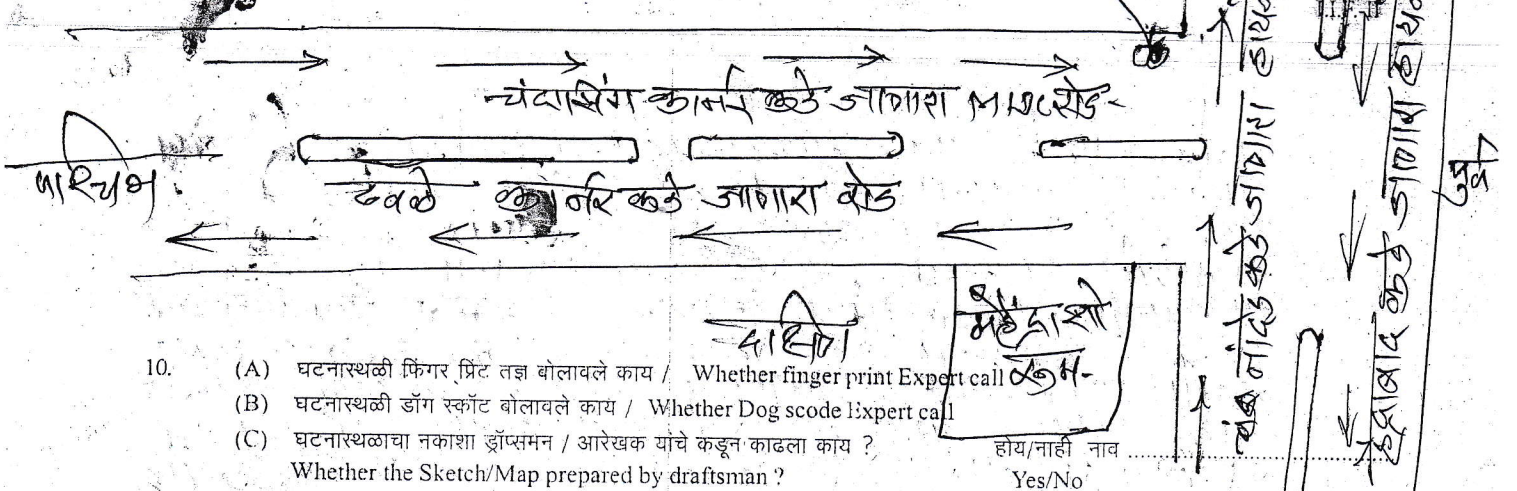 चंदासिंग कार्नर कडे जाणारा MIDC रोड-
पश्चिम.
ढवळे कॉर्नर कडे जाणारा रोड
पुर्व
नांदेड कडे जाणारा हायवे
हैद्राबाद कडे जाणारा हायवे
दक्षिण
महिंद्रा शो
रूम-
10. (A) घटनास्थळी फिंगर प्रिंट तज्ञ बोलावले काय / Whether finger print Expert call
(B) घटनास्थळी डॉग स्कॉट बोलावले काय / Whether Dog scode Expert call
(C) घटनास्थळाचा नकाशा ड्रॉप्समन / आरेखक यांचे कडून काढला काय ? होय/नाही नाव ................
Whether the Sketch/Map prepared by draftsman ? Yes/No